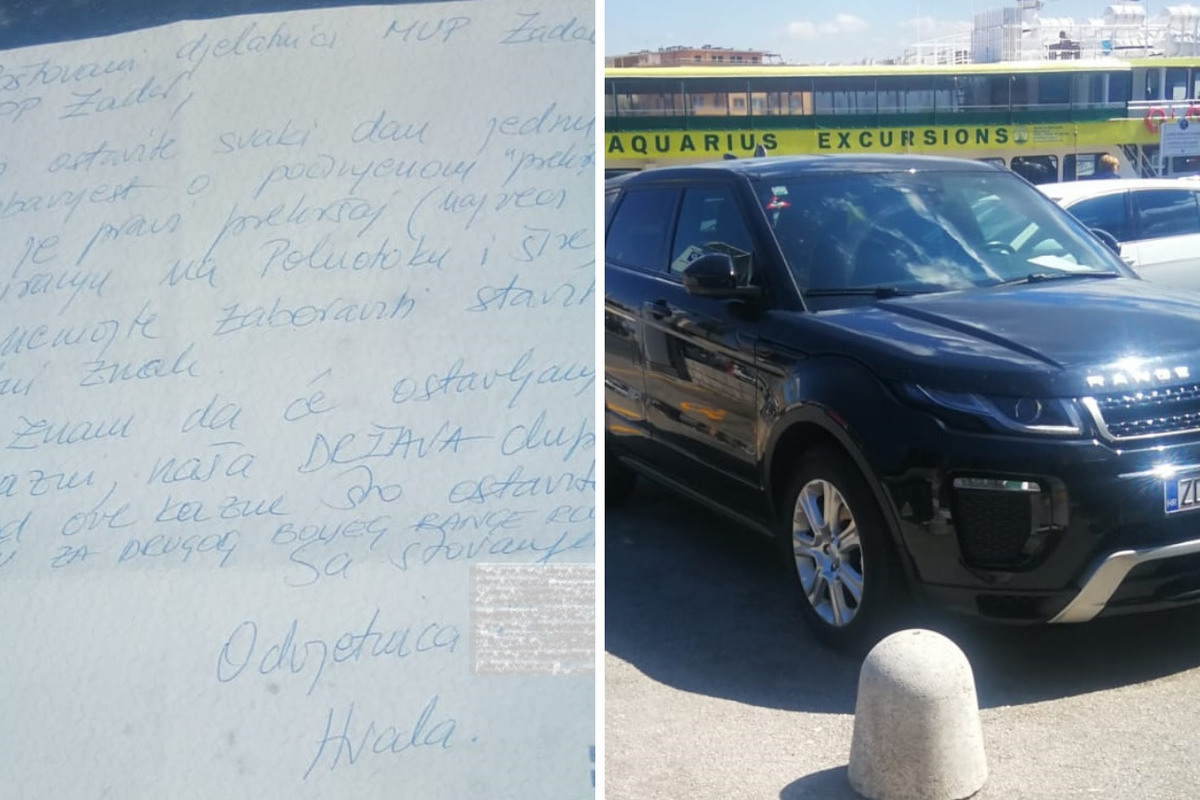 oštovani djelatnici MUP Zadar
OP Zadar,
ostavite svaki dan jednu
bavijest o počinjenom "prekr
je pravi prekršaj (najveći
iranju na Poluotoku i šire
nemojte zaboraviti staviti
ni znak.
Znam da će ostavljanj
azni, naša DRŽAVA dup
d ove kazne što ostavite
ZA DRUGOG BOLJEG RANGE RO
Sa štovanjem
Odvjetnica
Hvala.
AQUARIUS EXCURSIONS
RANGE
HR ZD